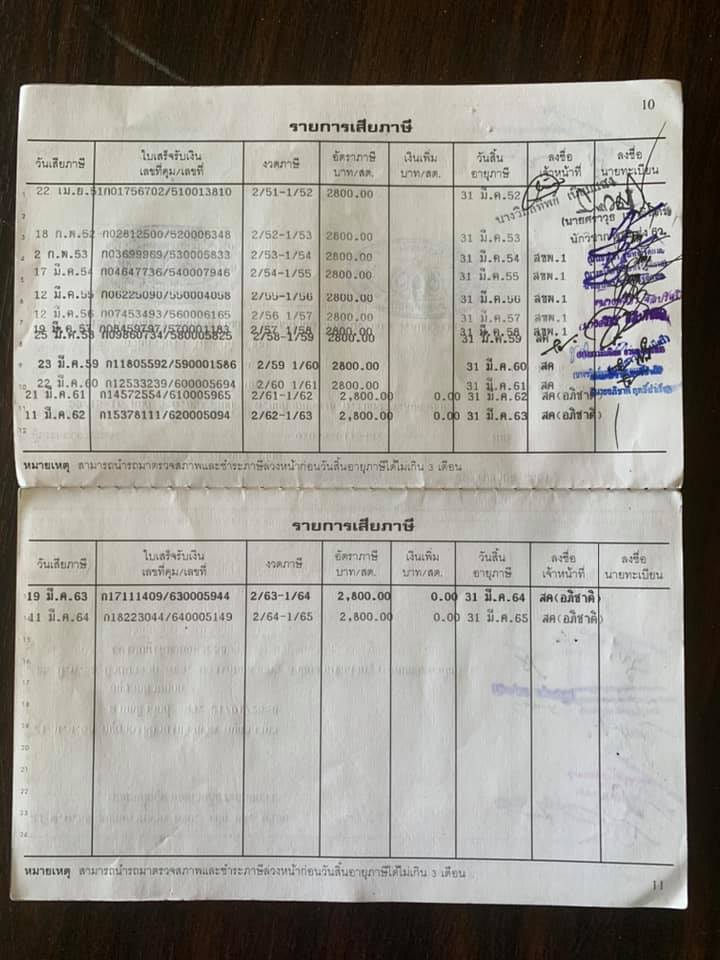 10
รายการเสียภาษี
วันเสียภาษี ใบเสร็จรับเงิน เลขที่คุม/เลขที่ งวดภาษี อัตราภาษี บาท/สต. เงินเพิ่ม บาท/สต. วันสิ้น อายุภาษี ลงชื่อ เจ้าหน้าที่ ลงชื่อ นายทะเบียน
1 22 เม.ย.51 ก01756702/510013810 2/51-1/52 2800.00 31 มี.ค.52
3 18 ก.พ.52 ก02812500/520006348 2/52-1/53 2800.00 31 มี.ค.53
4 2 ก.พ.53 ก03699969/530005833 2/53-1/54 2800.00 31 มี.ค.54 สขพ.1
17 มี.ค.54 ก04647736/540007946 2/54-1/55 2800.00 31 มี.ค.55 สขพ.1
12 มี.ค.55 ก06225090/550004058 2/55-1/56 2800.00 31 มี.ค.56 สขพ.1
12 มี.ค.56 ก07453493/560006165 2/56 1/57 2800.00 31 มี.ค.57 สขพ.1
19 มี.ค.57 ก08459797/570001183 2/57 1/58 2800.00 31 มี.ค.58 สขพ.1
25 มี.ค.58 ก09860734/580005825 2/58-1/59 2800.00 31 มี.ค.59 สค
9 23 มี.ค.59 ก11805592/590001586 2/59 1/60 2800.00 31 มี.ค.60 สค
10 22 มี.ค.60 ก12533239/600005694 2/60 1/61 2800.00 31 มี.ค.61 สค
21 มี.ค.61 ก14572554/610005965 2/61-1/62 2,800.00 0.00 31 มี.ค.62 สค(อภิชาติ)
11 มี.ค.62 ก15378111/620005094 2/62-1/63 2,800.00 0.00 31 มี.ค.63 สค(อภิชาติ)
หมายเหตุ สามารถนำรถมาตรวจสภาพและชำระภาษีล่วงหน้าก่อนวันสิ้นอายุภาษีได้ไม่เกิน 3 เดือน
รายการเสียภาษี
วันเสียภาษี ใบเสร็จรับเงิน เลขที่คุม/เลขที่ งวดภาษี อัตราภาษี บาท/สต. เงินเพิ่ม บาท/สต. วันสิ้น อายุภาษี ลงชื่อ เจ้าหน้าที่ ลงชื่อ นายทะเบียน
19 มี.ค.63 ก17111409/630005944 2/63-1/64 2,800.00 0.00 31 มี.ค.64 สค(อภิชาติ)
11 มี.ค.64 ก18223044/640005149 2/64-1/65 2,800.00 0.00 31 มี.ค.65 สค(อภิชาติ)
15
16
17
18
19
20
21
22
23
24
หมายเหตุ สามารถนำรถมาตรวจสภาพและชำระภาษีล่วงหน้าก่อนวันสิ้นอายุภาษีได้ไม่เกิน 3 เดือน
11